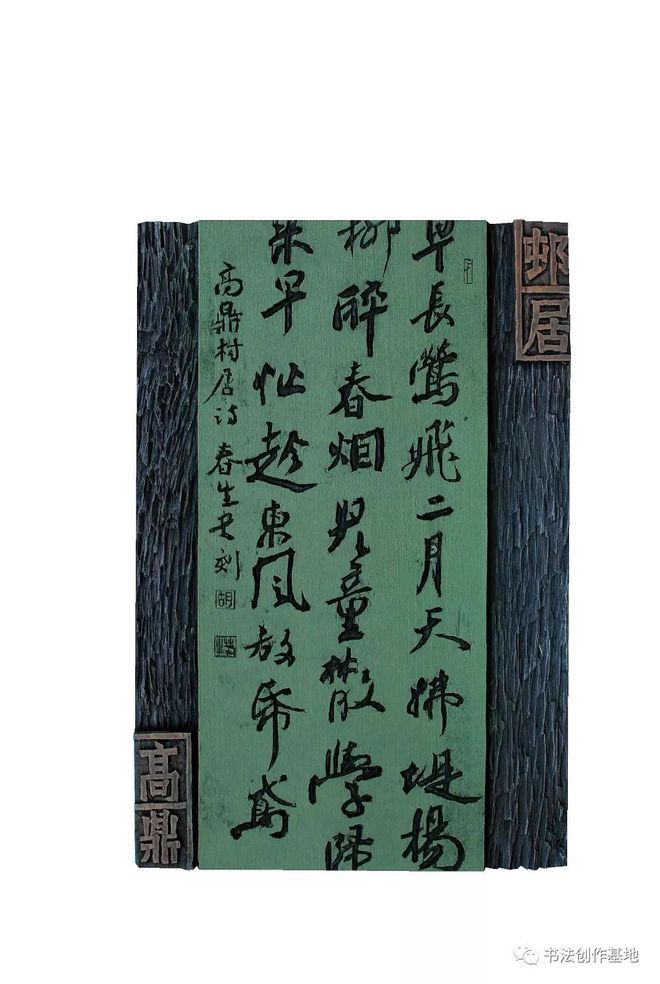 邨居
草長鶯飛二月天拂堤楊
柳醉春烟兒童散學歸
來早忙趁東風放紙鳶
高鼎村居詩 春生書刻
胡
高鼎
书法创作基地